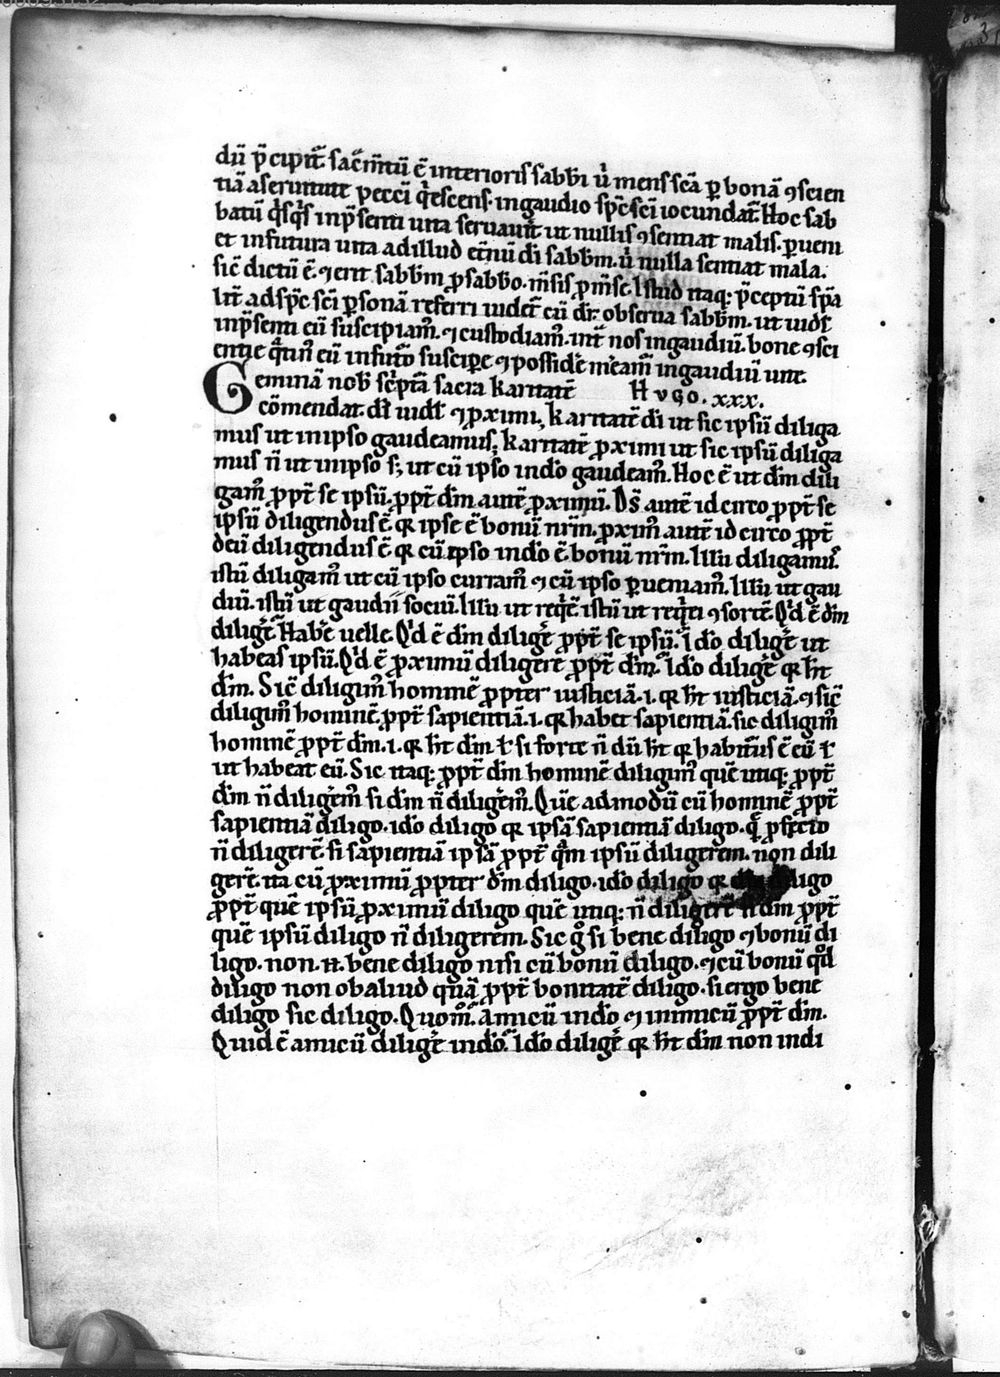 dū p̄cipit᷒. sac̄m̄tū ē interioris sabb̄i ū mens sc̄a p̱ bonā ꝯscien
tiā a seruitute pecc̄i q̇escens. in gaudio sp̄c sc̄i iocundat᷒. Hoc sab
batū q̇sq̇s in p̄senti uita seruauit ut nullis ꝯsentiat malis. p̱ueni
et in futura uita ad illud et̄nū di sabb̄m. u̇ nulla sentiat mala.
sic̄ dictū ē. ⁊ erit sabb̄m p̱ sabb̄o. m̄sis p̱ m̄se. Istud itaq; p̄ceptū sp̄a
lit̄ ad sp̄c sc̄i p̱sonā referri uidet᷒ cū dr̄: obserua sabb̄m. ut uidꝫ
in p̄senti eū suscipiam᷒. ⁊ custodiam᷒. int᷒ nos in gaudiū. bone ꝯsci
entie q̄tin᷒ eū in futuro suscipe ⁊ possidē meam᷒ in gaudiū uite.
Geminā nob̄ sc̄ptā sacra karitatē Hvgo. xxx.
cōmendat. di uidl̄ ⁊ ꝓximi, karitatē di ut sic ip̄sū diliga
mus ut in ipso gaudeamus; karitatē ꝓximi ut sic ip̄sū diliga
mus n̄ ut in ipso s; ut cū ipso in dō gaudeam᷒. Hoc ē ut dm̄ dili
gam᷒ ꝓpt̄ se ipsū. ꝓpt̄ dm̄ autē ꝓximū. Ds̄ autē idcirco ꝓpt̄ se
ipsū diligendus ē qr ipse ē bonū nr̄m. ꝓxim᷒ autē idcirco ꝓpt̄
deū diligendus ē qr cū ipso in dō ē bonū nr̄m. Illū diligam᷒.
istū diligam᷒ ut cū ipso curram᷒ ⁊ cū ipso p̱ueniam᷒. Illū ut gau
diū. istū ut gaudii sociū. Illū ut req̇ē. istū ut req̇ei ꝯsortē. Q̇d ē dm̄
diliḡe. Habē uelle. Q̇d ē dm̄ diliḡe ꝓpt̄ se ipsū. Idō diliḡe ut
habeas ipsū. Q̇d ē ꝓximū diligere ꝓpt̄ dm̄. Idō diliḡe qr h̄t
dm̄. Sic̄ diligim᷒ hominē propter iusticiā .i. qr h̄t iusticiā. ⁊ sic̄
diligim᷒ hominē ꝓpt̄ sapientiā .i. qr habet sapientiā. sic diligim᷒
hominē ꝓpt̄ dm̄ .i. qr h̄t dm̄ ł si forte n̄ dū h̄t qr habitur᷒ ē eū ł
ut habeat eū. Sic itaq; ꝓpt̄ dm̄ hominē diligim᷒ quē utiq; ꝓpt̄
dm̄ n̄ diliḡem᷒ si dm̄ n̄ diliḡem᷒. Quē admodū cū hominē ꝓpt̄
sapientiā diligo. idō diligo qr ipsā sapientiā diligo. q̄ ꝓfecto
n̄ diligerē. si sapientiā ipsā ꝓpt̄ q̄m ipsū diligerem. non dili
gerē. ita cū ꝓximū propter dm̄ diligo. idō diligo qr diligo
ꝓpt̄ quē ipsū ꝓximū diligo quē utiq; n̄ diligerē si dm̄ ꝓpt̄
quē ipsū diligo n̄ diligerem. Sic g̊ si bene diligo ⁊ bonū di
ligo. non .n. bene diligo nisi cū bonū diligo. ⁊ cū bonū qd̄
diligo non ob aliud quā ꝓpt̄ bonitatē diligo. si ergo bene
diligo sic diligo. Quom̊. amicū in dō ⁊ inimicū ꝓpt̄ dm̄.
Quid ē amicū diliḡe in dō. Idō diliḡe qr h̄t dm̄ non indi